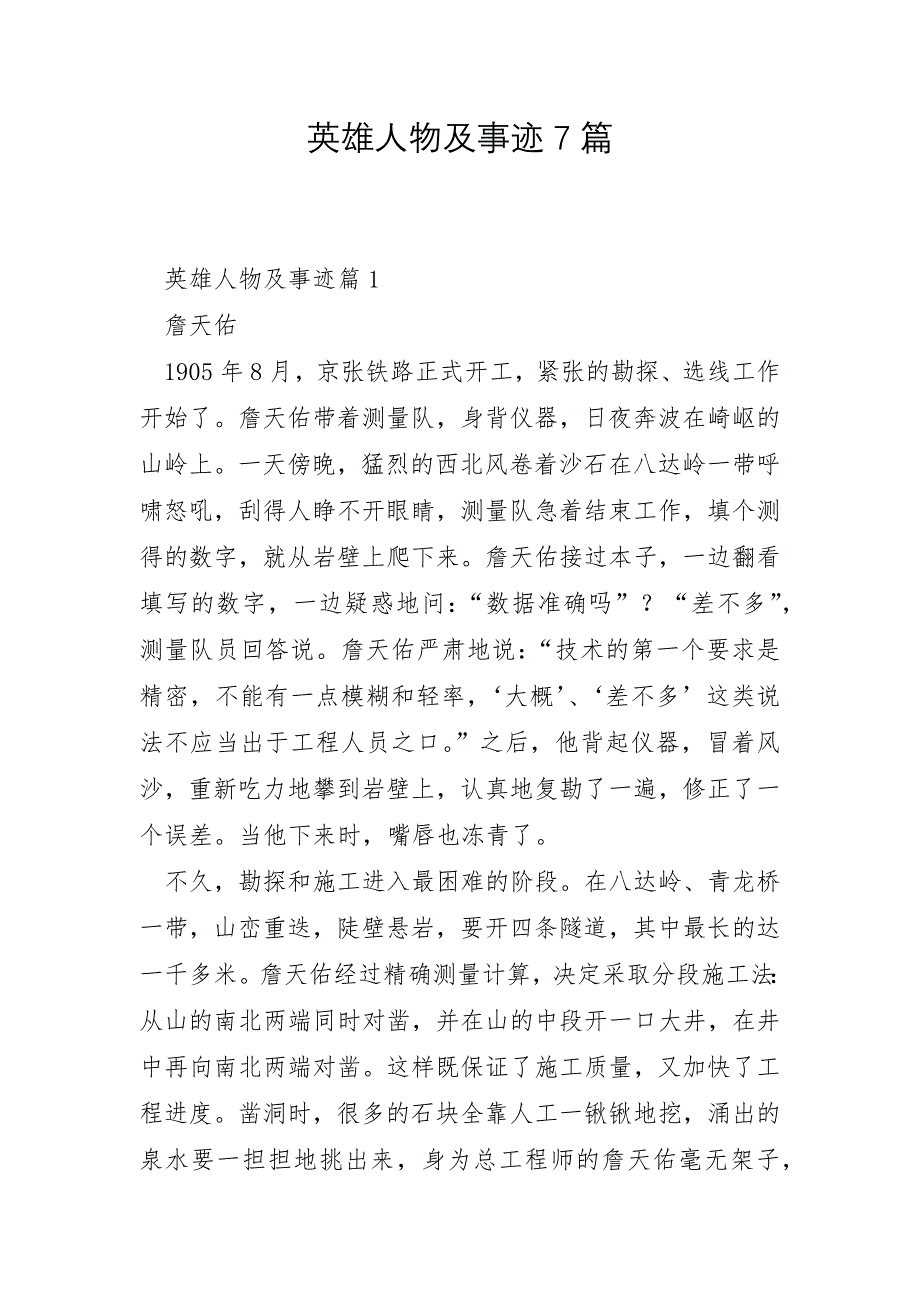 英雄人物及事迹7篇
英雄人物及事迹篇1
詹天佑
1905年8月，京张铁路正式开工，紧张的勘探、选线工作
开始了。詹天佑带着测量队，身背仪器，日夜奔波在崎岖的
山岭上。一天傍晚，猛烈的西北风卷着沙石在八达岭一带呼
啸怒吼，刮得人睁不开眼睛，测量队急着结束工作，填个测
得的数字，就从岩壁上爬下来。詹天佑接过本子，一边翻看
填写的数字，一边疑惑地问：“数据准确吗”？“差不多”，
测量队员回答说。詹天佑严肃地说：“技术的第一个要求是
精密，不能有一点模糊和轻率，‘大概’、‘差不多’这类说
法不应当出于工程人员之口。”之后，他背起仪器，冒着风
沙，重新吃力地攀到岩壁上，认真地复勘了一遍，修正了一
个误差。当他下来时，嘴唇也冻青了。
不久，勘探和施工进入最困难的阶段。在八达岭、青龙桥
一带，山峦重迭，陡壁悬岩，要开四条隧道，其中最长的达
一千多米。詹天佑经过精确测量计算，决定采取分段施工法：
从山的南北两端同时对凿，并在山的中段开一口大井，在井
中再向南北两端对凿。这样既保证了施工质量，又加快了工
程进度。凿洞时，很多的石块全靠人工一锹锹地挖，涌出的
泉水要一担担地挑出来，身为总工程师的詹天佑毫无架子，